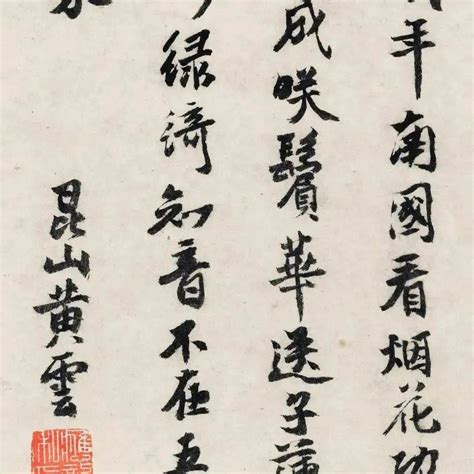 年南國看烟花
成咲鬢華送子
绿綺知音不在
昆山黄雲